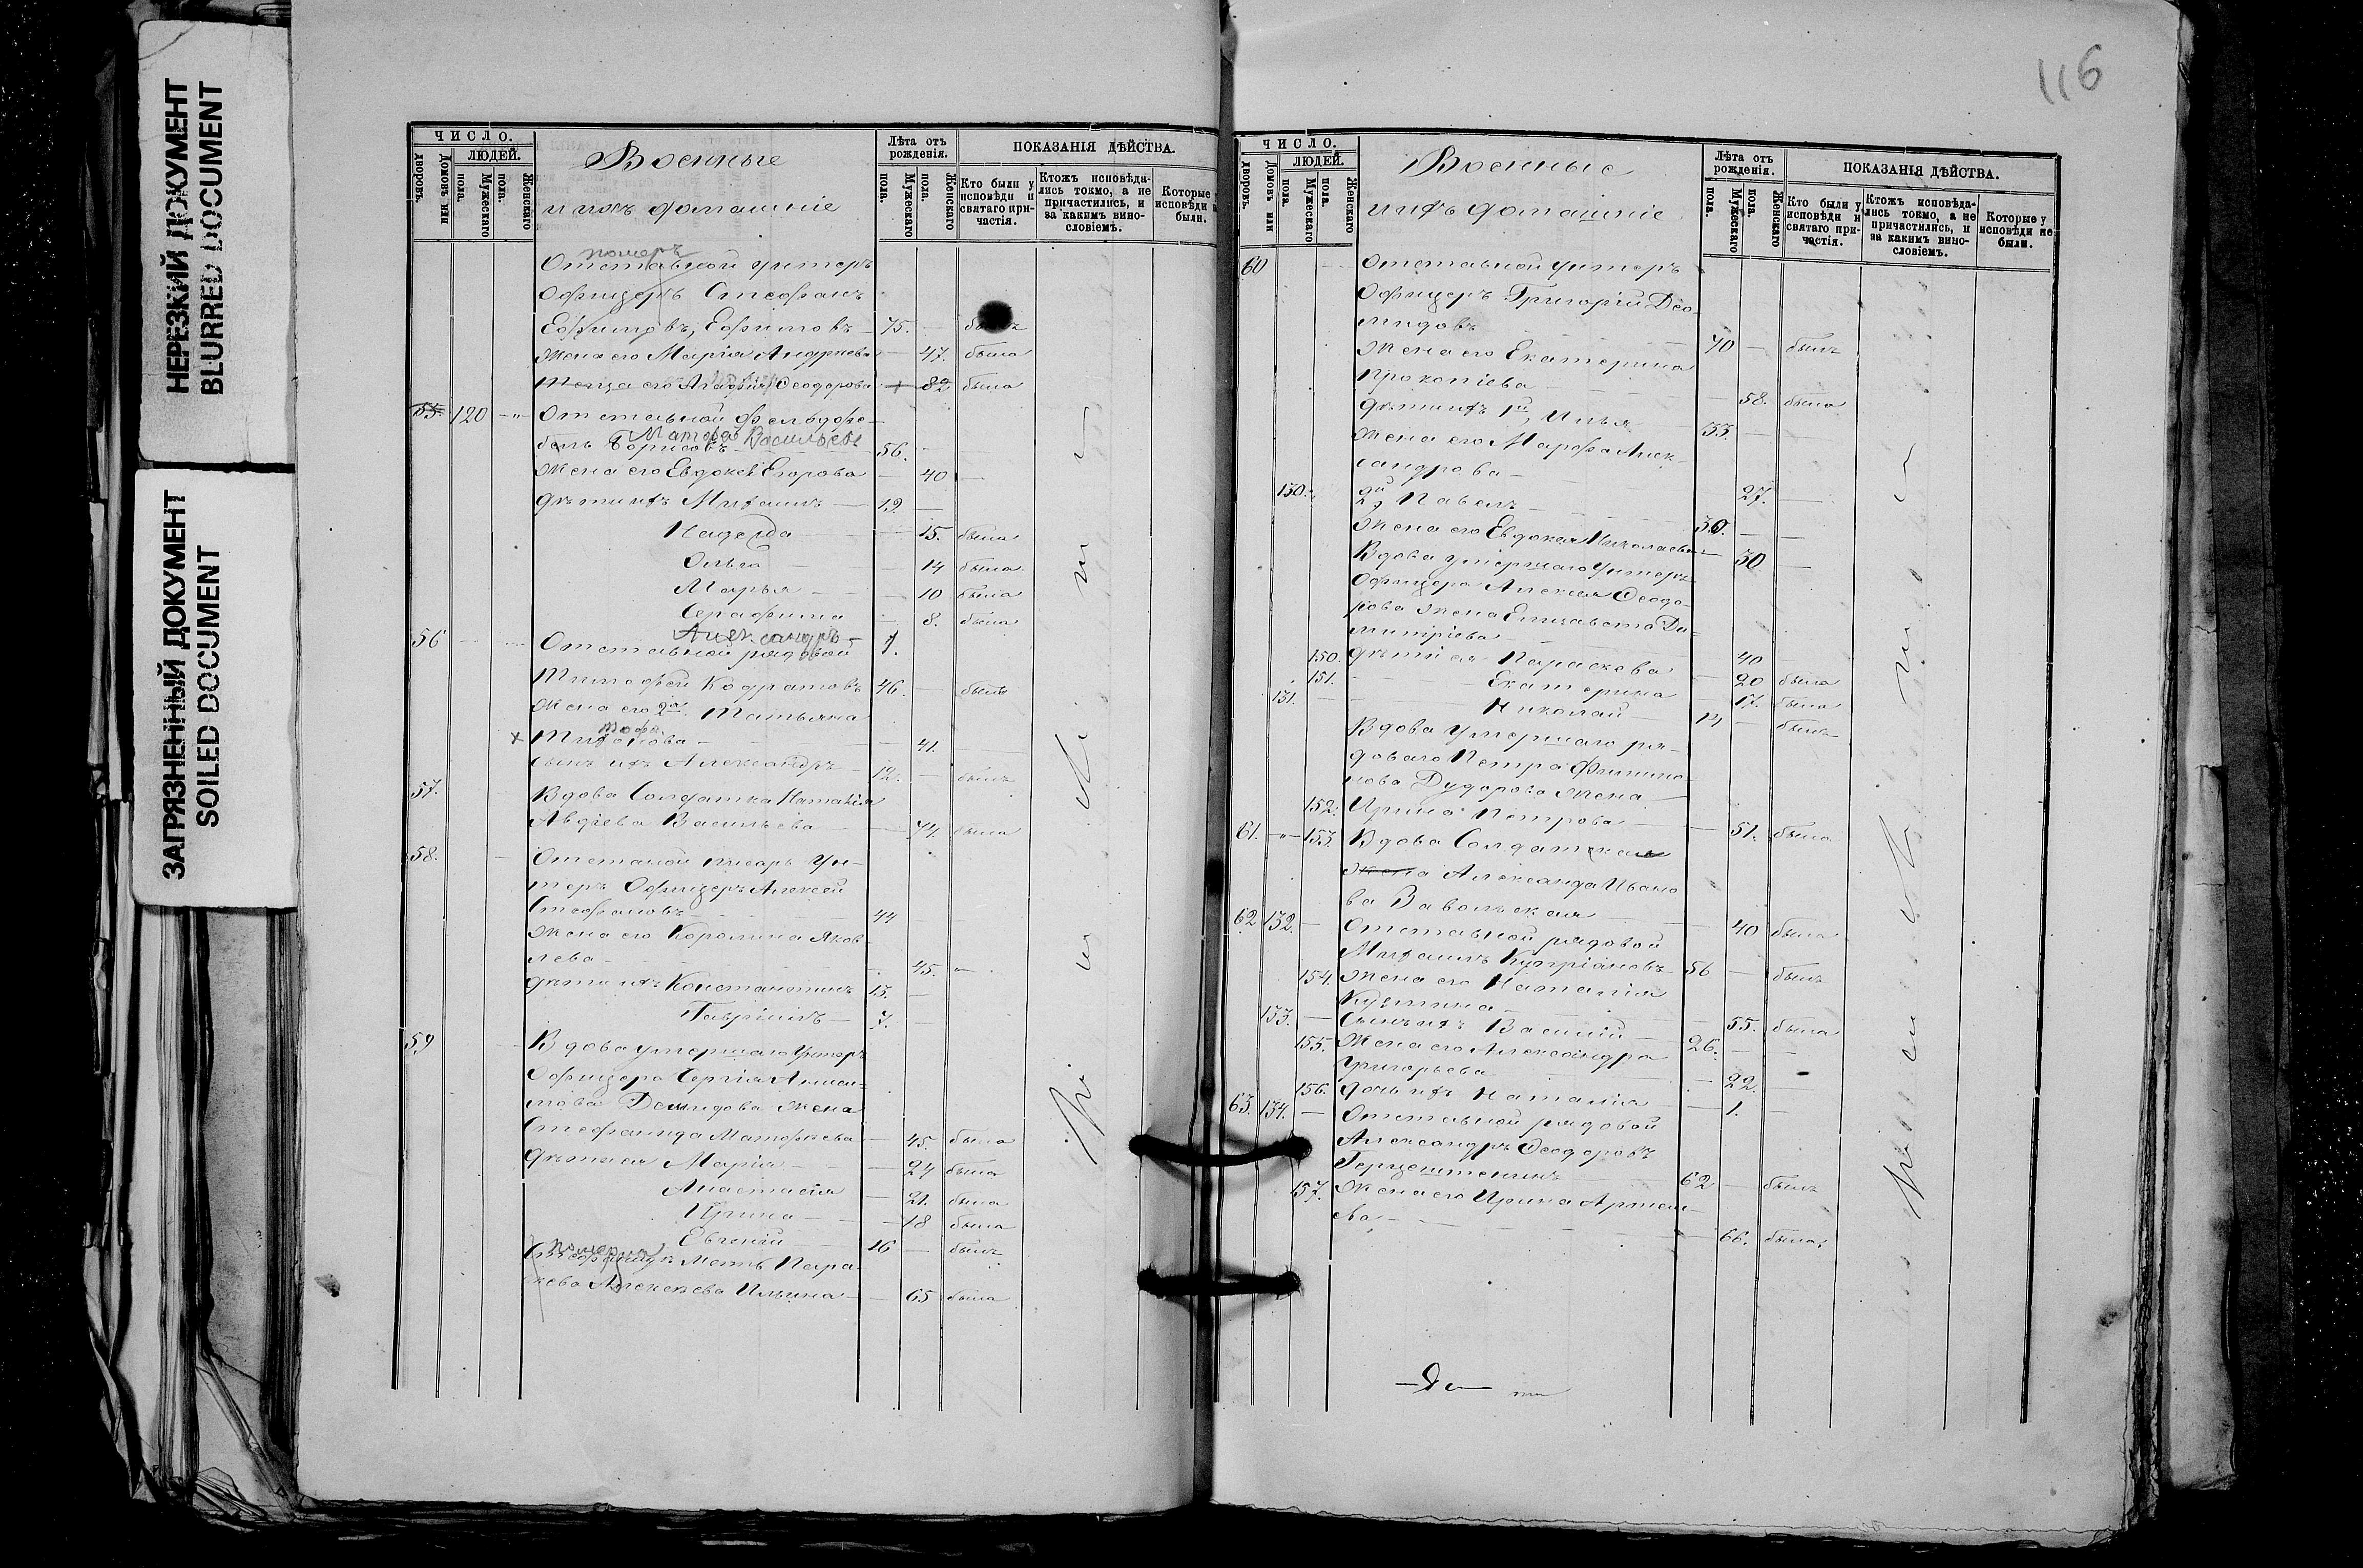 НЕРЕЗКИЙ ДОКУМЕНТ
BLURRED DOCUMENT
ЗАГРЯЗНЕННЫЙ ДОКУМЕНТ
SOILED DOCUMENT
ЧИСЛО.
ЛЮДЕЙ.
Домовъ или дворовъ.
Мужескаго пола.
Женскаго пола.
Военные
и ихъ домашніе
Лѣта отъ рожденія.
Мужескаго пола.
Женскаго пола.
ПОКАЗАНІЯ ДѢЙСТВА.
Кто были у исповѣди и святаго причастія.
Ктожъ исповѣдались токмо, а не причастились, и за какимъ винословіемъ.
Которые исповѣди были.
померъ
Отставной унтеръ
Офицеръ Стефанъ
Ефимовъ, Ефимовъ 75. — былъ
Жена его Марія Андреева — 47. была
Теща его Агафія Ѳеодорова — 82 была
55. 120 — Отставной фельдфе-
бель Борисовъ Матфей Васильевъ 56. —
Жена его Евдокія Егорова — 40 —
дѣти ихъ Михаилъ — 19 —
Надежда — 15. была
Ольга — 14 была
Марья — 10 была
Серафима — 8. была
Александръ — 1.
56 Отставной рядовой
Тимофей Кодратовъ 46. — былъ
Жена его 2я Татьяна
— 41. —
сынъ ихъ Александръ 12. — былъ
57. Вдова Солдатка Наталія
Авдіева Васильева — 74. была
58. Отставной писарь Ун-
теръ Офицеръ Алексей
Стефановъ — 44
Жена его Каролина Яков-
лева — 45. —
дѣти ихъ Константинъ 15. —
Гавріилъ — 7. —
59 Вдова умершаго Унтеръ
Офицера Сергія
Демидова жена
Стефанида Матфеева — 45. была
дѣти ея Марія — 24 была
Анастасія — 21. была
Ирина — 18 была
Евгеній 16 — былъ
померла
Стефаниды мать Пара-
скева Алексеева Ильина — 65 была
116
ЧИСЛО.
ЛЮДЕЙ.
Домовъ или дворовъ.
Мужескаго пола.
Женскаго пола.
Военные
и ихъ домашніе
Лѣта отъ рожденія.
Мужескаго пола.
Женскаго пола.
ПОКАЗАНІЯ ДѢЙСТВА.
Кто были у исповѣди и святаго причастія.
Ктожъ исповѣдались токмо, а не причастились, и за какимъ винословіемъ.
Которые у исповѣди не были.
60 Отставной унтеръ
Офицеръ Григорій Део-
мидовъ 70 — былъ
Жена его Екатерина
Прокопіева — 58. была
дѣти ихъ 1й, Илья 33. —
Жена его Марфа Алек-
сандрова — 27. —
130. 2й, Павелъ 30. —
Жена его Евдокія Николаева — 30 —
Вдова умершаго Унтеръ
Офицера Алексія Ѳеодо-
рова жена Елизавета Ди-
митріева 40
150. дѣти ея Параскева — 20 была
151. Екатерина — 17. была
131. Николай 14 — былъ
Вдова умершаго ря-
доваго Петра Филимо-
нова Дударова жена
152. Ирина Петрова — 51. была
61. 153. Вдова Солдатская
жена Александра Ивано
ва Завольская — 40 была
62 132. — Отставной рядовой
Михаилъ Купріановъ 56 — былъ
154. Жена его Наталія
Кузмина — 55. была
133. — Сынъ ихъ Василій 26. —
155. Жена его Александра
Григорьева — 22. —
156. дочь ихъ Наталія — 1. —
63. 134. — Отставной рядовой
Александръ Ѳеодоровъ
62 — былъ
157. Жена его Ирина Артемь-
ева — 66. была.